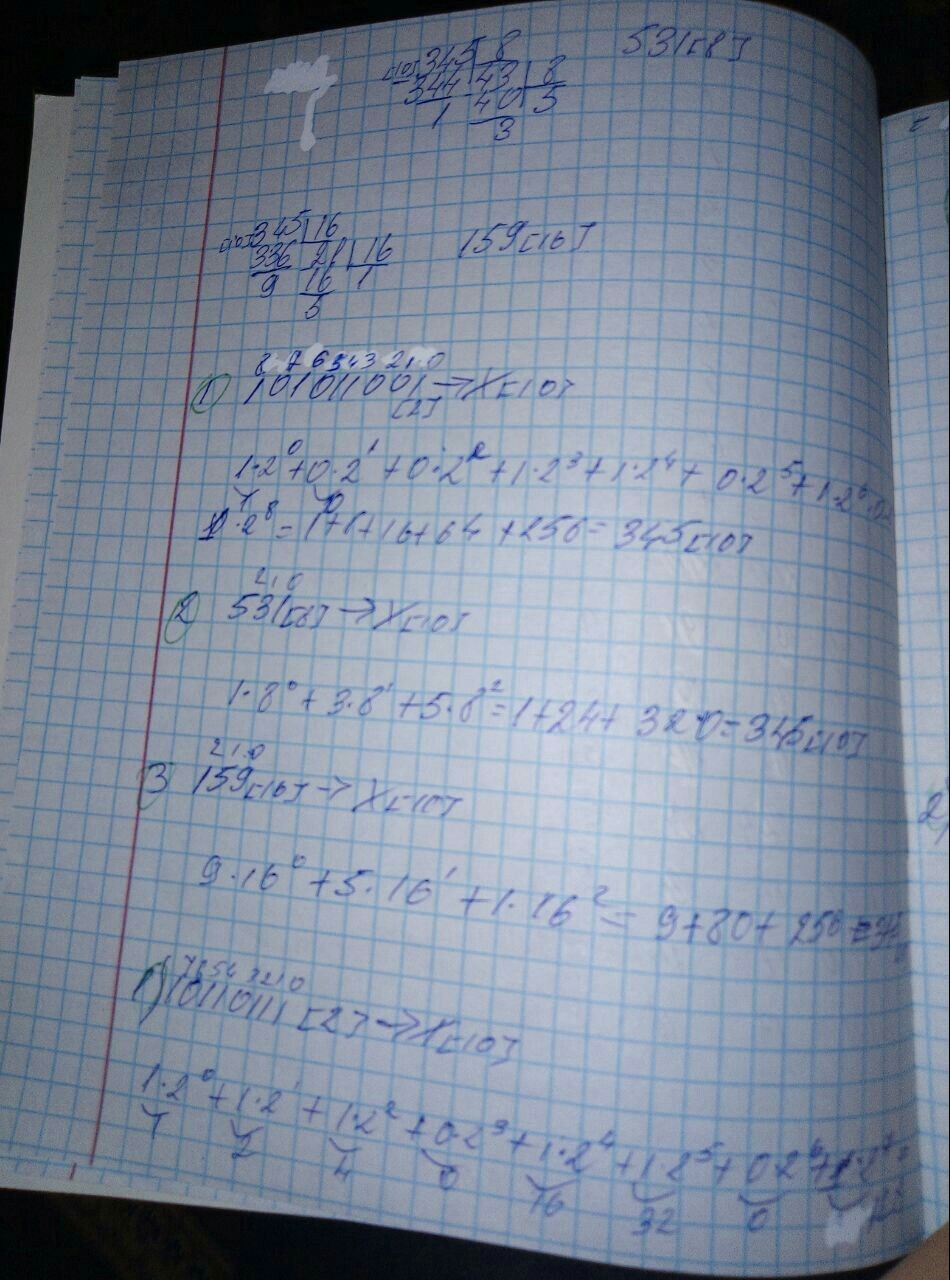 345 | 8 531[8]
[10] 344 | 43 | 8
1 40 5
3
[10] 345 | 16 159[16]
336 | 21 | 16
9 16 1
5
8 7 6 5 4 3 2 1 0
1) 101011001[2] → X[10]
1·2⁰+0·2¹+0·2²+1·2³+1·2⁴+0·2⁵+1·2⁶+0·2
1 0
1·2⁸=1+8+16+64+256=345[10]
2 1 0
2 531[8] → X[10]
1·8⁰+3·8¹+5·8²=1+24+320=345[10]
2 1 0
3 159[16] → X[10]
9·16⁰+5·16¹+1·16²=9+80+256=345
7 6 5 4 3 2 1 0
1) 10110111[2] → X[10]
1·2⁰+1·2¹+1·2²+0·2³+1·2⁴+1·2⁵+0·2⁶+1·2⁷=
1 2 4 0 16 32 0
2,